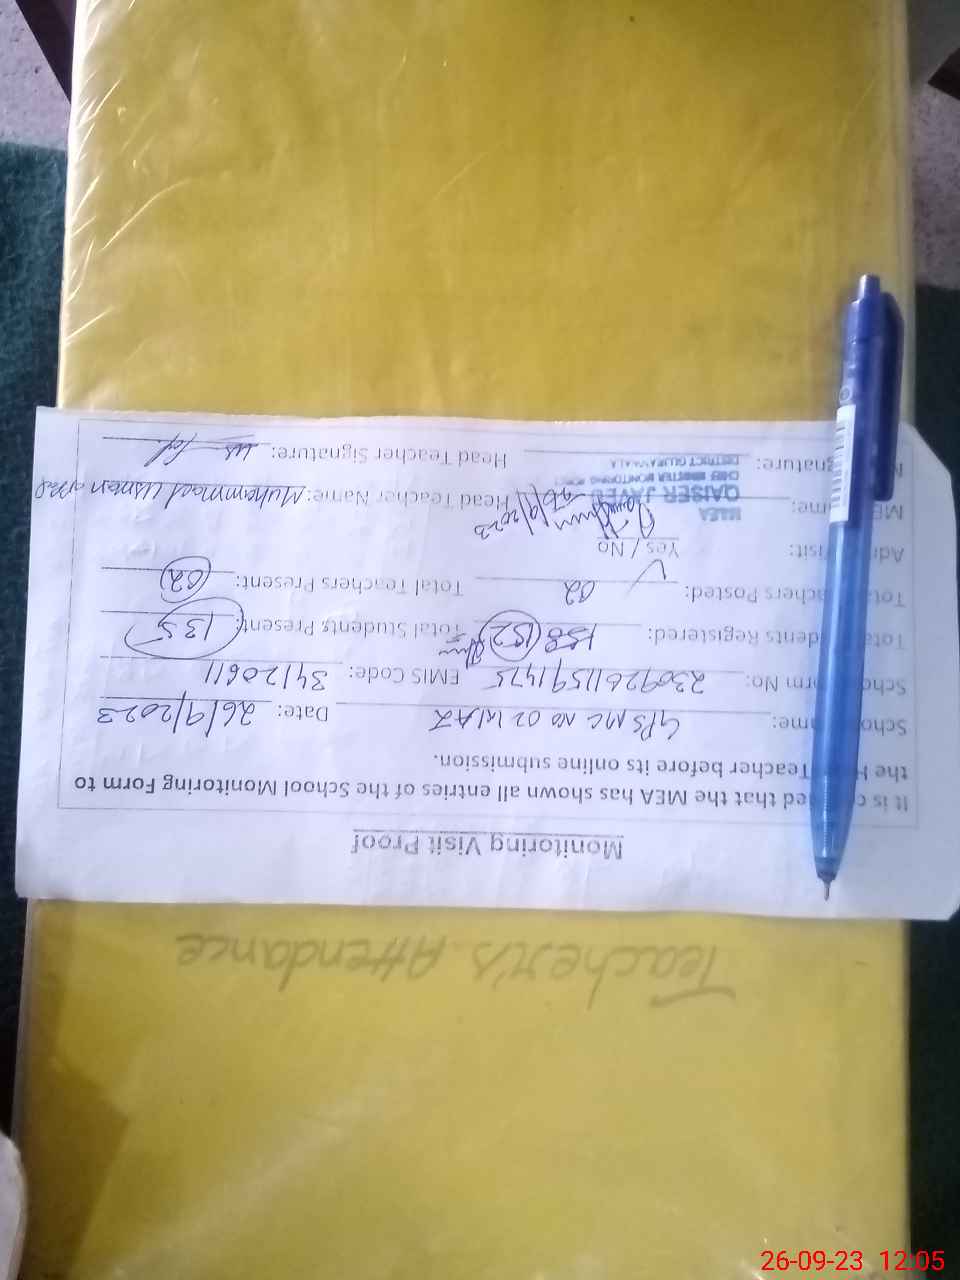 Monitoring Visit Proof
It is ed that the MEA has shown all entries of the School Monitoring Form to
the Teacher before its online submission.
Scho ame: GPS MC NO 02 Date: 26/9/2023
Scho orm No: EMIS Code: 34120611
Tota dents Registered: 158 152 Total Students Present: 135
Tota achers Posted: 02 Total Teachers Present: 02
Adm Visit: Yes / No
26/9/2023
ME me: Head Teacher Name: Muhammad Usman
M gnature: Head Teacher Signature:
M&EA
QAISER JAVED
CHIEF MINISTER MONITORING FORCE
DISTRICT GUJRANWALA
Teacher's Attendance
26-09-23 12:05